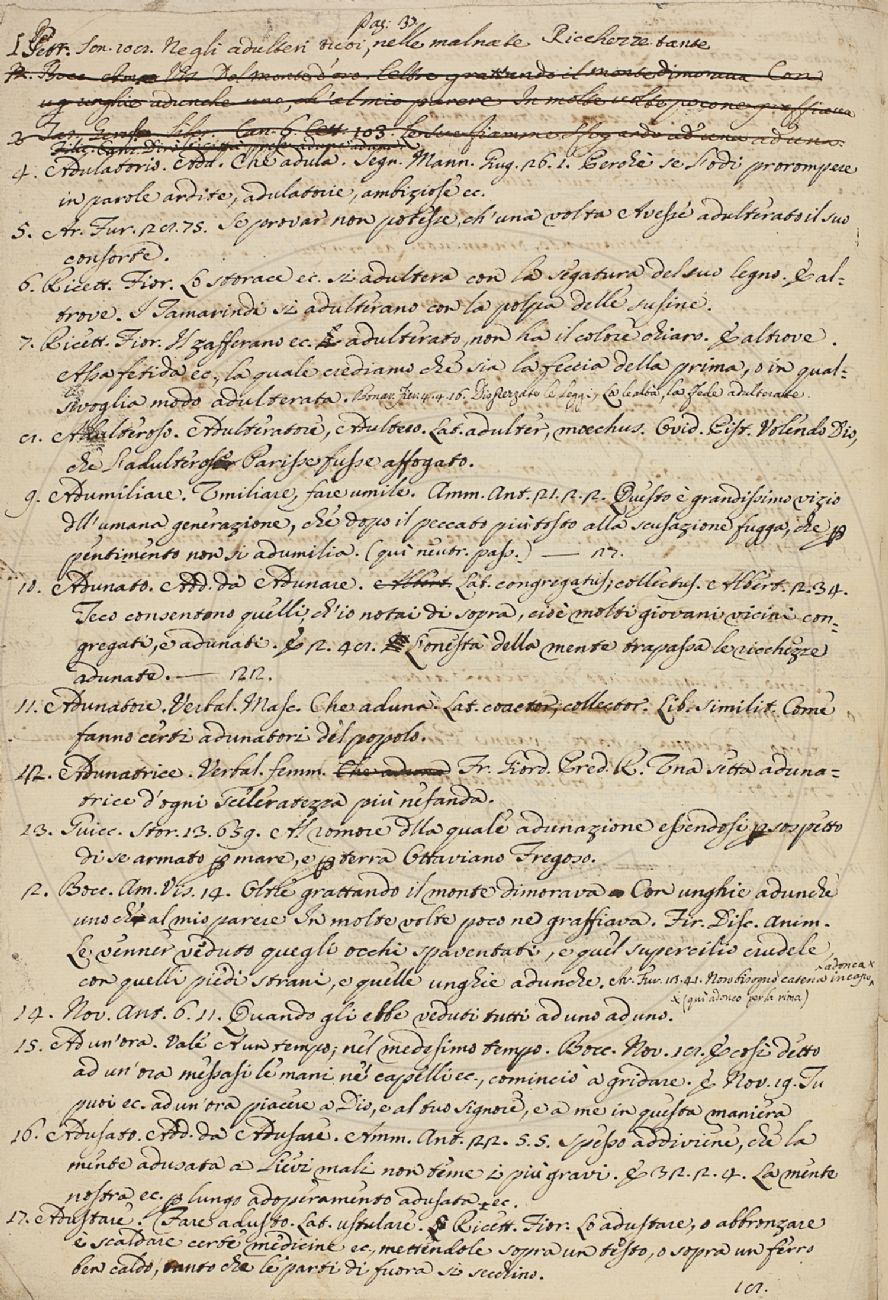 pag: 37
1. Petr. Son. 107. Negli adulteri tuoi, nelle malnate Ricchezze tante
Bocc. Am. Vis. Dal monte d'oro. Colse grattando il monte dimorava Con
ug unghie adunche uno, ch'al mio parere In molte volte poco ne graffiava
Can. 6. 103.
4. Adulatorio. Add. Che adula. Segn. Mann. Giug. 26. 1. Perchè se s'odi prorompere
in parole ardite, adulatorie, ambiziose ec.
5. Ar. Fur. 27. 75. Se provar non potesse, ch'una volta Avesse adulterato il suo
consorte.
6. Ricett. Fior. Lo storace ec. si adultera con la segatura del suo legno. E al-
trove. I Tamarindi si adulterano con la polpa delle susine.
7. Ricett. Fior. Il zafferano ec. adulterato, non ha il colore chiaro. E altrove.
Assa fetida ec., la quale crediamo che sia la feccia della prima, o in qual-
sivoglia modo adulterata. le leggi, la lealtà, la fede adulterate.
Adulteroso. Adulteratore, Adultero. Lat. adulter, moechus. Ovid. Pist. Volendo Dio,
che l'adulteroso Parisse fusse affogato.
9. Adumiliare. Umiliare, fare umile. Amm. Ant. 21. 2. 2. Questo è grandissimo vizio
dll'umana generazione, che dopo il peccato più tosto alla scusazione fugga, che p
pentimento non si adumilia. (qui neutr. pass.) —
10. Adunato. Add. da Adunare. Albert. Lat. congregatus, collectus. Albert. 2. 34.
Teco consentono quelli, ch'io notai di sopra, cioè molti giovani vicini con-
gregati, e adunati. E L'onestà della mente trapassa le ricchezze
adunate. —
11. Adunatore. Verbal. Masc. Che aduna. Lat. coactor, collector. Lib. similit. Come
fanno certi adunatori del popolo.
12. Adunatrice. Verbal. femm. Che aduna Fr. Giord. Pred. R. Una setta aduna-
trice d'ogni scelleratezza più nefanda.
13. Guicc. Stor. 13. 639. Al romore dlla quale adunazione essendosi p sospetto
di se armato p mare, e p terra Ottaviano Fregoso.
12. Bocc. Am. Vis. 14. Oltre grattando il monte dimorava Con unghie adunche
uno ch'al mio parere In molte volte poco ne graffiava. Fir. Disc. Anim.
Le venner veduto quegli occhi spaventati, e quel supercilio crudele
con quelli piedi strani, e quelle unghie adunche. Ar. Fur. 13. 41. Non bisognò catena adonca in capo
(qui adonco per la rima)
14. Nov. Ant. 6. 11. Quando gli ebbe veduti tutti ad uno ad uno.
15. Ad un'ora. Vale A un tempo; nel medesimo tempo. Bocc. Nov. 17. E così detto
ad un'ora messasi le mani ne' capelli ec., cominciò a gridare. E Nov. 19. Tu
puoi ec. ad un'ora piacere a Dio, e al tuo signore, e a me in questa maniera
16. Adusato. Add. da Adusare. Amm. Ant. 22. 5. 5. Spesso addiviene, che la
mente adusata a lievi mali non teme i più gravi. E 32. 2. 4. La mente
nostra ec. p lungo adoperamento adusata ec.
17. Adustare. Fare adusto. Lat. ustulare. Ricett. Fior. Lo adustare, o abbronzare
è scaldare certe medicine ec., mettendole sopra un testo, o sopra un ferro
ben caldo, tanto che le parti di fuora si secchino.